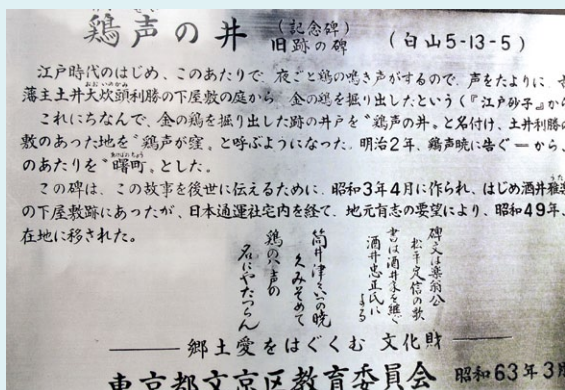 鶏声の井 (記念碑)旧跡の碑 (白山5-13-5)
江戸時代のはじめ、このあたりで、夜ごと鶏の鳴き声がするので、声をたよりに、
藩主土井大炊頭利勝の下屋敷の庭から、金の鶏を掘り出したという(『江戸砂子』か
これにちなんで、金の鶏を掘り出した跡の井戸を“鶏声の井”と名付け、土井利勝の
敷のあった地を“鶏声が窪”と呼ぶようになった。明治2年、鶏声暁に告ぐ ー から、
のあたりを“曙町”とした。
この碑は、この故事を後世に伝えるために、昭和3年4月に作られ、はじめ酒井雅
の下屋敷跡にあったが、日本通運社宅内を経て、地元有志の要望により、昭和49年、
在地に移された。
碑文は楽翁公
松平定信の歌
書は酒井家を継ぐ
酒井忠正氏による
筒井津ゝいの暁
久みそめて
鶏の八声の
名にやたつらん
郷土愛をはぐくむ 文化財
東京都文京区教育委員会 昭和63年3月